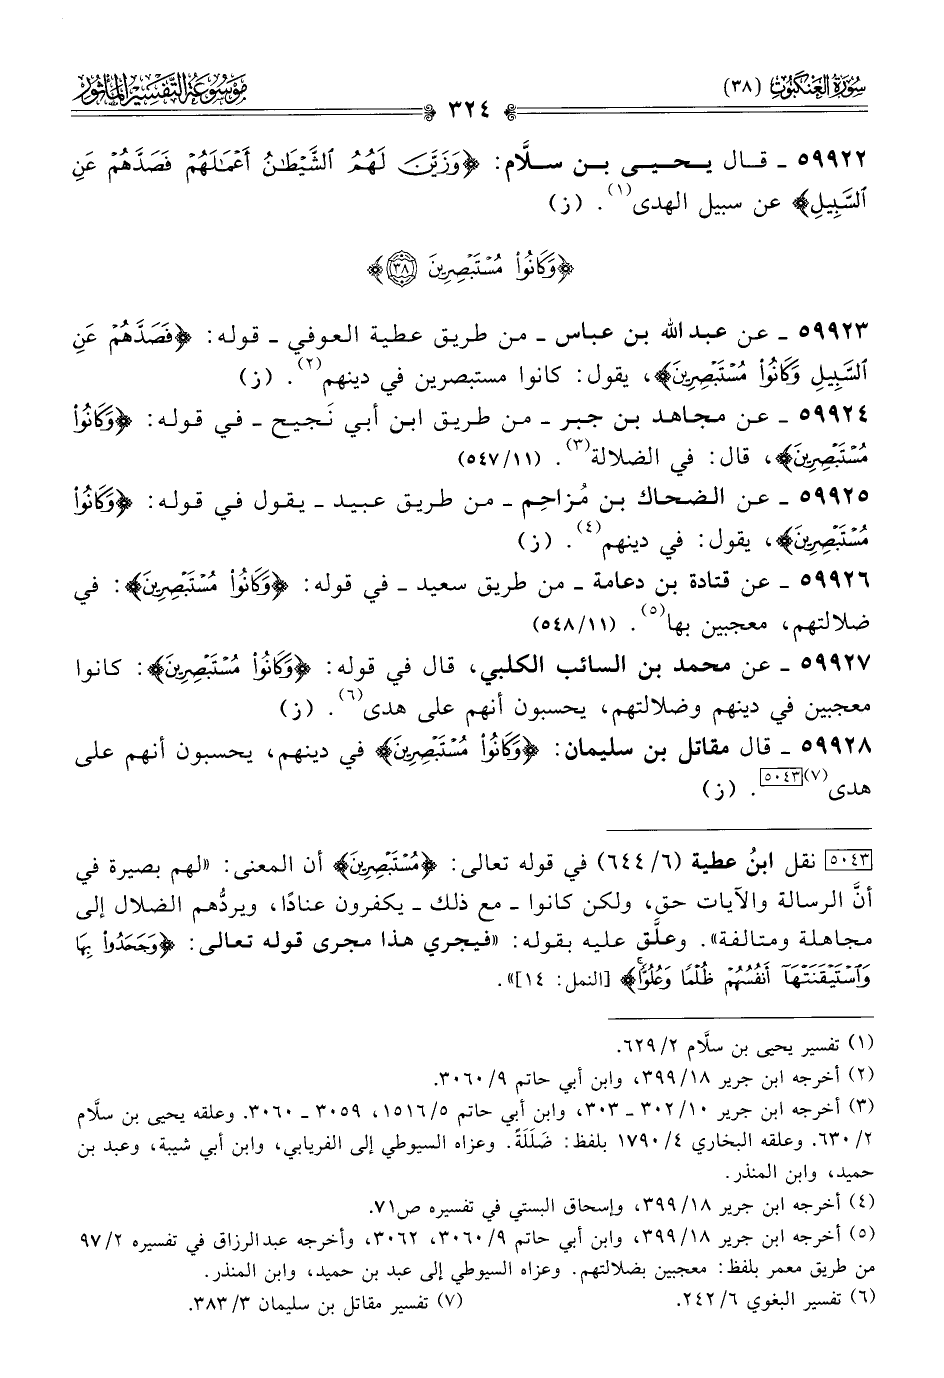 سورة العنكبوت (٣٨)
٣٢٤
موسوعة التفسير المأثور
٥٩٩٢٢ - قال يحيى بن سلَّام: ﴿وَزَيَّنَ لَهُمُ ٱلشَّيْطَٰنُ أَعْمَٰلَهُمْ فَصَدَّهُمْ عَنِ
ٱلسَّبِيلِ﴾ عن سبيل الهدى(١). (ز)
﴿وَكَانُوا۟ مُسْتَبْصِرِينَ ٣٨﴾
٥٩٩٢٣ - عن عبد الله بن عباس - من طريق عطية العوفي - قوله: ﴿فَصَدَّهُمْ عَنِ
ٱلسَّبِيلِ وَكَانُوا۟ مُسْتَبْصِرِينَ﴾، يقول: كانوا مستبصرين في دينهم(٢). (ز)
٥٩٩٢٤ - عن مجاهد بن جبر - من طريق ابن أبي نَجيح - في قوله: ﴿وَكَانُوا۟
مُسْتَبْصِرِينَ﴾، قال: في الضلالة(٣). (٥٤٧/١١)
٥٩٩٢٥ - عن الضحاك بن مُزاحِم - من طريق عبيد - يقول في قوله: ﴿وَكَانُوا۟
مُسْتَبْصِرِينَ﴾، يقول: في دينهم(٤). (ز)
٥٩٩٢٦ - عن قتادة بن دعامة - من طريق سعيد - في قوله: ﴿وَكَانُوا۟ مُسْتَبْصِرِينَ﴾: في
ضلالتهم، معجبين بها(٥). (٥٤٨/١١)
٥٩٩٢٧ - عن محمد بن السائب الكلبي، قال في قوله: ﴿وَكَانُوا۟ مُسْتَبْصِرِينَ﴾: كانوا
معجبين في دينهم وضلالتهم، يحسبون أنهم على هدى(٦). (ز)
٥٩٩٢٨ - قال مقاتل بن سليمان: ﴿وَكَانُوا۟ مُسْتَبْصِرِينَ﴾ في دينهم، يحسبون أنهم على
هدى(٧)[٥٠٤٣]. (ز)
[٥٠٤٣] نقل ابنُ عطية (٦٤٤/٦) في قوله تعالى: ﴿مُسْتَبْصِرِينَ﴾ أن المعنى: «لهم بصيرة في
أنَّ الرسالة والآيات حق، ولكن كانوا - مع ذلك - يكفرون عنادًا، ويردُّهم الضلال إلى
مجاهلة ومتالفة». وعلَّق عليه بقوله: «فيجري هذا مجرى قوله تعالى: ﴿وَجَحَدُوا۟ بِهَا
وَٱسْتَيْقَنَتْهَآ أَنفُسُهُمْ ظُلْمًا وَعُلُوًّا﴾ [النمل: ١٤]».
(١) تفسير يحيى بن سلَّام ٢/ ٦٢٩.
(٢) أخرجه ابن جرير ١٨/ ٣٩٩، وابن أبي حاتم ٩/ ٣٠٦٠.
(٣) أخرجه ابن جرير ١٠/ ٣٠٢ - ٣٠٣، وابن أبي حاتم ٥/ ١٥١٦، ٣٠٥٩ - ٣٠٦٠. وعلقه يحيى بن سلَّام
٢/ ٦٣٠. وعلقه البخاري ٤/ ١٧٩٠ بلفظ: ضَلَلَةً. وعزاه السيوطي إلى الفريابي، وابن أبي شيبة، وعبد بن
حميد، وابن المنذر.
(٤) أخرجه ابن جرير ١٨/ ٣٩٩، وإسحاق البستي في تفسيره ص٧١.
(٥) أخرجه ابن جرير ١٨/ ٣٩٩، وابن أبي حاتم ٩/ ٣٠٦٠، ٣٠٦٢، وأخرجه عبد الرزاق في تفسيره ٢/ ٩٧
من طريق معمر بلفظ: معجبين بضلالتهم. وعزاه السيوطي إلى عبد بن حميد، وابن المنذر.
(٦) تفسير البغوي ٦/ ٢٤٢. (٧) تفسير مقاتل بن سليمان ٣/ ٣٨٣.